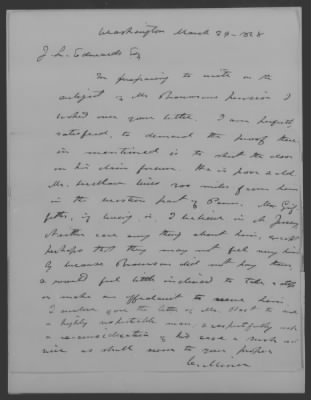 Washington March 29 - 1828
J. L. Edwards Esq
In preparing to write on the
subject of Mr Bronsons pension I
looked over your letter. I am perfectly
satisfied, to demand the proof there
in mentioned is to shut the door
on his claim forever. He is poor & old.
Mr. lives 200 miles from him
in the western part of Penn. Mr.
if living is, I believe in N Jersey
Neither care any thing about him, except
perhaps that they may not feel very kind
ly because Bronson did not pay them,
& would feel little inclined to take a step
or make an affidavit to serve him.
I enclose you the letter of Mr. to me
a highly respectable man, & respectfully ask
a re-consideration of his case & such ad
vice as shall seem to you proper
C. Miner